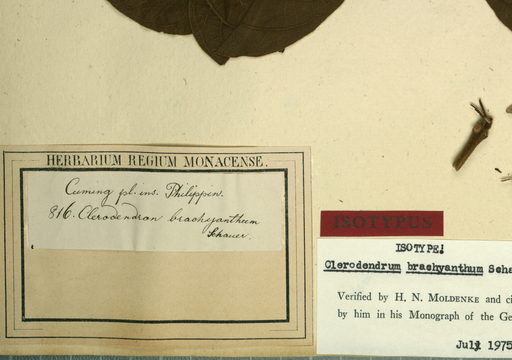 HERBARIUM REGIUM MONACENSE.
Cuming pl. ins. Philippin.
816. Clerodendron brachyantheum
Schauer.
ISOTYPUS
ISOTYPE!
Clerodendrum brachyanthum Scha
Verified by H. N. MOLDENKE and ci
by him in his Monograph of the Ge
July 1975